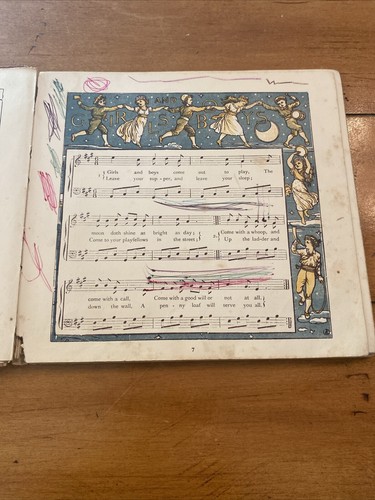 GIRLS AND BOYS
{ Girls and boys come out to play, The
Leave your sup-per, and leave your sleep;
moon doth shine as bright as day; { Come with a whoop, and
Come to your playfellows in the street; Up the ladder and
came with a call, Come with a good will or not at all.
down the wall, A pen-ny loaf will serve you all.
7